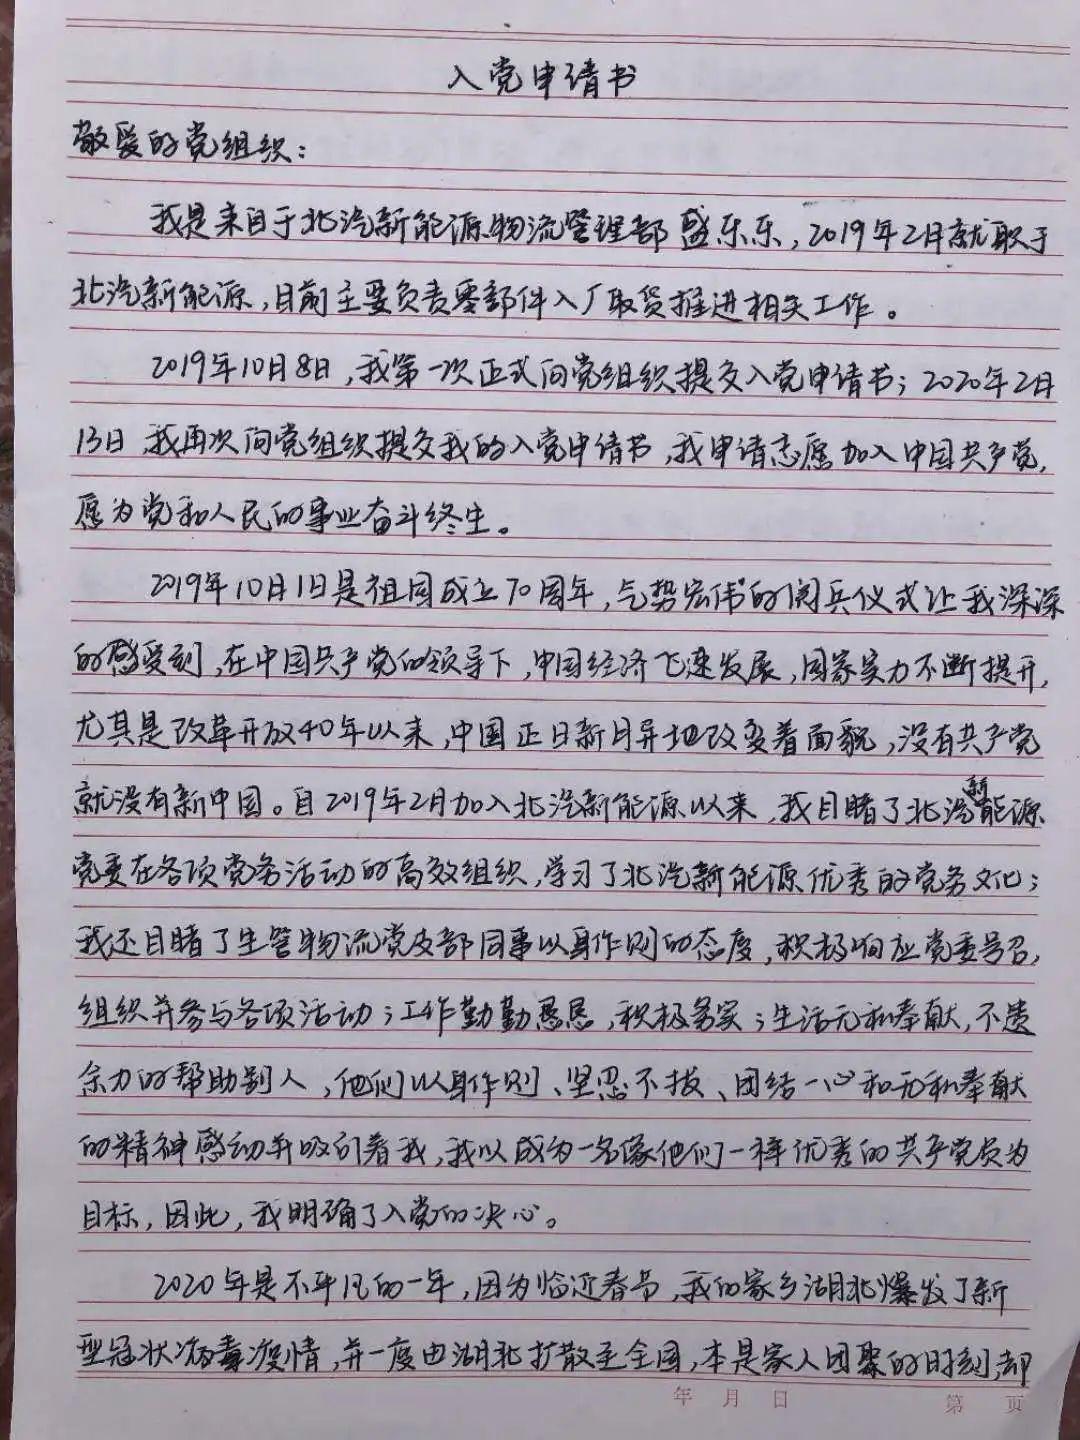 入党申请书
敬爱的党组织：
我是来自于北汽新能源物流管理部盛乐乐，2019年2月就职于
北汽新能源，目前主要负责零部件入厂取货推进相关工作。
2019年10月8日，我第一次正式向党组织提交入党申请书；2020年2月
13日，我再次向党组织提交我的入党申请书，我申请志愿加入中国共产党，
愿为党和人民的事业奋斗终生。
2019年10月1日是祖国成立70周年，气势宏伟的阅兵仪式让我深深
的感受到，在中国共产党的领导下，中国经济飞速发展，国家实力不断提升，
尤其是改革开放40年以来，中国正日新月异地改变着面貌，没有共产党
就没有新中国。自2019年2月加入北汽新能源以来，我目睹了北汽新能源
党委在各项党务活动的高效组织，学习了北汽新能源优秀的党务文化；
我还目睹了生管物流党支部同事以身作则的态度，积极响应党委号召，
组织并参与各项活动；工作勤勤恳恳，积极务实；生活无私奉献，不遗
余力的帮助别人，他们以身作则、坚忍不拔、团结一心和无私奉献
的精神感动并吸引着我，我以成为一名像他们一样优秀的共产党员为
目标，因此，我明确了入党的决心。
2020年是不平凡的一年，因为临近春节，我的家乡湖北爆发了新
型冠状病毒疫情，并一度由湖北扩散至全国，本是家人团聚的时刻，却
年 月 日
第 页